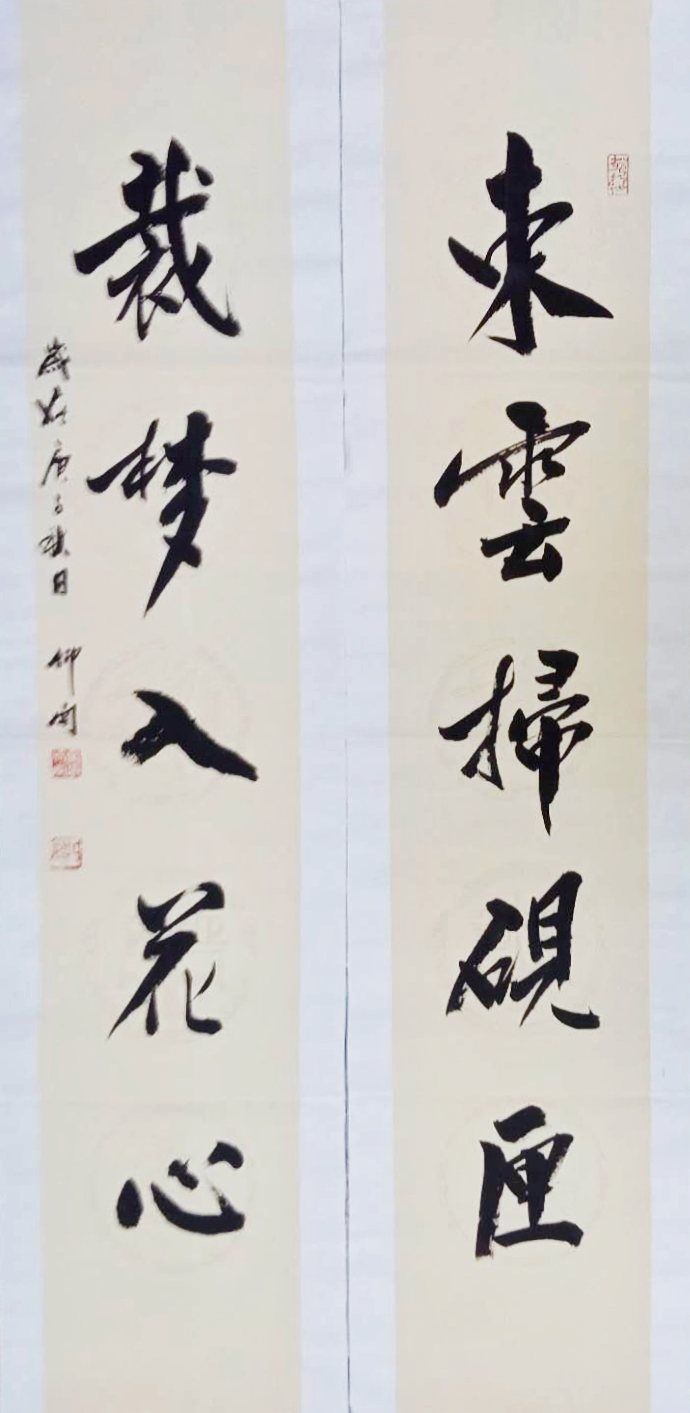 束雲掃硯匣
裁梦入花心
歲在庚子秋日